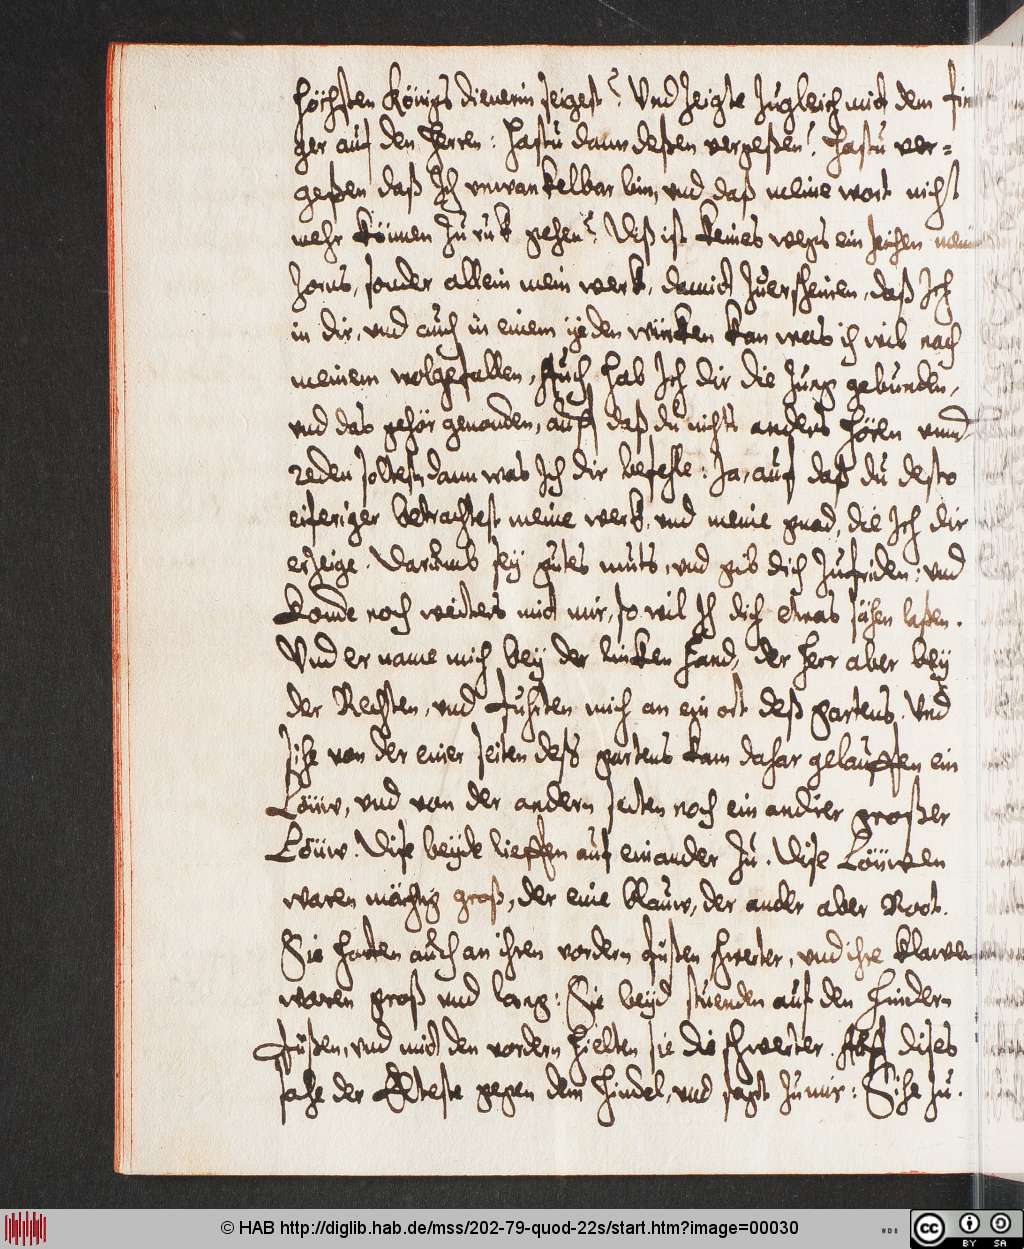 höchsten Königs dienerin seigest? Und zeigte zugleich mit dem fin
ger auf den Herren: hastu dann deßen vergeßen? hastu ver=
geßen daß Ich unwankelbar bin, und daß meine wort nicht
mehr können zuruk gehen? Diß ist keines wegs ein zeichen mein
Zorns, sonder allein mein werk, damit zuerscheinen, daß Ich
in dir, und auch in einem ijeden würken kan was ich wil nach
meinem wolgefallen, Auch hab Ich dir die zung gebunden,
und das gehör genomden, auff daß du nichts anders hören unnd
reden soltest, dann was Ich dir befehle: Ja, auf daß du desto
eiferiger betrachtest meine werk, und meine gnad, die Ich dir
erzeige. Darumb sey gutes muts, und gib dich zufriden: und
komde noch weiters mit mir, so wil Ich dich etwas sähen laßen.
Und er name mich bey der linken Hand, der Herr aber bey
der Rechten, und fuhrten mich an ein ort deß gartens. Und
sihe von der einer seiten deß gartens kam dahar gelauffen ein
Löuw, und von der andern seiten noch ein andrer großer
Löuw. Dise beyde lieffen auf einander zu. Dise Löuwen
waren mächtig groß, der eine blauw, der ander aber Root.
Sie hatten auch an ihren vordern fußen schwerter, und ihre klawen
waren groß und lang: Sie beyd stuenden auf den hindern
fußen, und mit den vordern hielten sie die schwerter. Auff dises
sahe der Elteste gegen dem Himdel, und sagt zu mir: Sihe zu.
© HAB http://diglib.hab.de/mss/202-79-quod-22s/start.htm?image=00030
WDB
cc BY SA